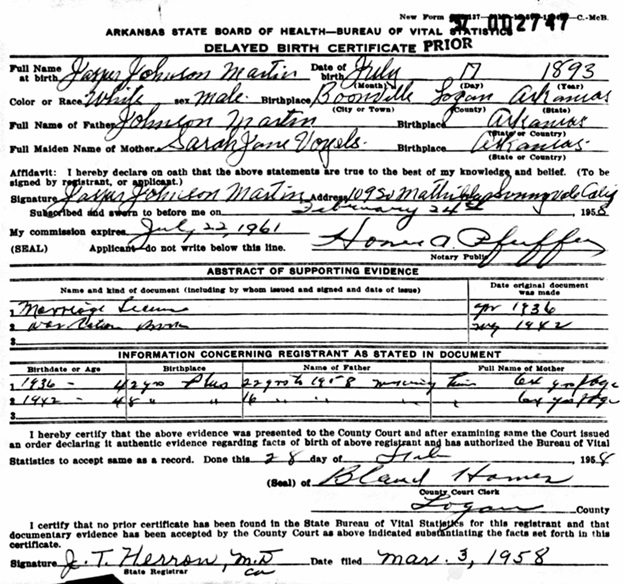 New Form
ARKANSAS STATE BOARD OF HEALTH—BUREAU OF VITAL STATISTICS
DELAYED BIRTH CERTIFICATE PRIOR
Full Name at birth Jasper Johnson Martin Date of birth July 17 1893
(Month) (Day) (Year)
Color or Race White sex male Birthplace Boonville Logan Arkansas
(City or Town) (County) (State)
Full Name of Father Johnson Martin Birthplace Arkansas
(State or Country)
Full Maiden Name of Mother Sarah Jane Birthplace Arkansas
(State or Country)
Affidavit: I hereby declare on oath that the above statements are true to the best of my knowledge and belief. (To be
signed by registrant, or applicant.)
Signature Jasper Johnson Martin Address 109 So Sunnyvale Calif
Subscribed and sworn to before me on February 24th 1958
My commission expires July 22, 1961
(SEAL) Applicant do not write below this line.
Notary Public
ABSTRACT OF SUPPORTING EVIDENCE
Name and kind of document (including by whom issued and signed and date of issue) Date original document was made
1 Marriage License 1936
2 War Ration Book 1942
3
INFORMATION CONCERNING REGISTRANT AS STATED IN DOCUMENT
Birthdate or Age Birthplace Name of Father Full Name of Mother
1. 1936 - 42 yrs Plus 22 yrs to 1958
2. 1942 - 48 " " 16 " " "
3.
I hereby certify that the above evidence was presented to the County Court and after examining same the Court issued
an order declaring it authentic evidence regarding facts of birth of above registrant and has authorized the Bureau of Vital
Statistics to accept same as a record. Done this 28 day of Feb 1958
(Seal) of Bland
County Court Clerk
Logan County
I certify that no prior certificate has been found in the State Bureau of Vital Statistics for this registrant and that
documentary evidence has been accepted by the County Court as above indicated substantiating the facts set forth in this
certificate.
Signature J. T. Herron, M.D. Date filed Mar. 3, 1958
State Registrar